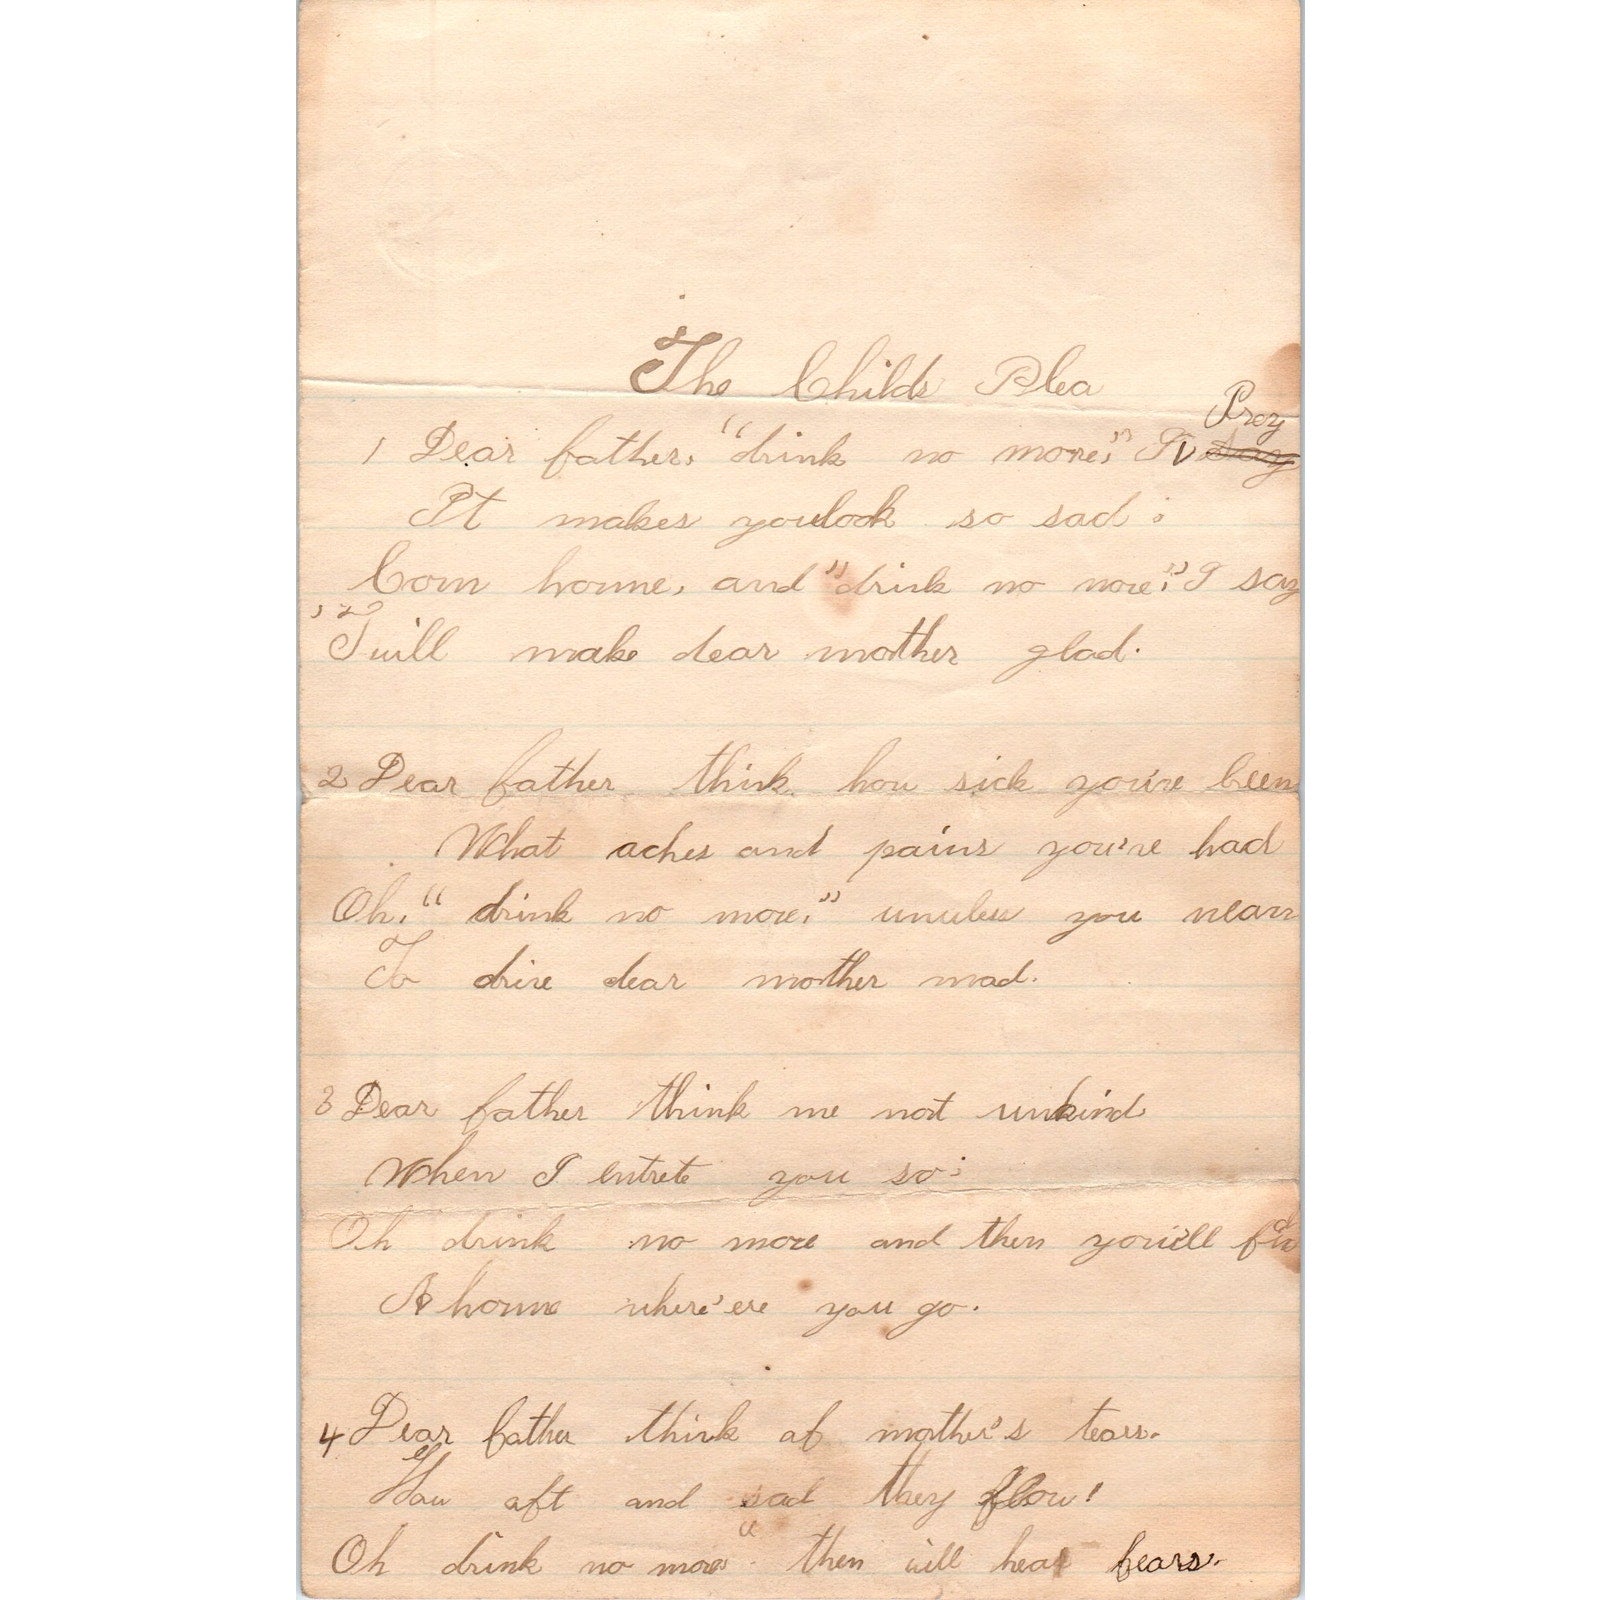 The Childs Plea
Pray
1 Dear father, "drink no more," I say
It makes you look so sad;
Com home, and "drink no more," I say
'Twill make dear mother glad.
2 Dear father think how sick you've been
What aches and pains you've had
Oh, "drink no more," unless you mean
To drive dear mother mad.
3 Dear father think me not unkind
When I entrete you so;
Oh drink no more and then you'll find
A home where'ere you go.
4 Dear father think of mother's tears.
How oft and sad they flow!
Oh drink no more" then will her fears.